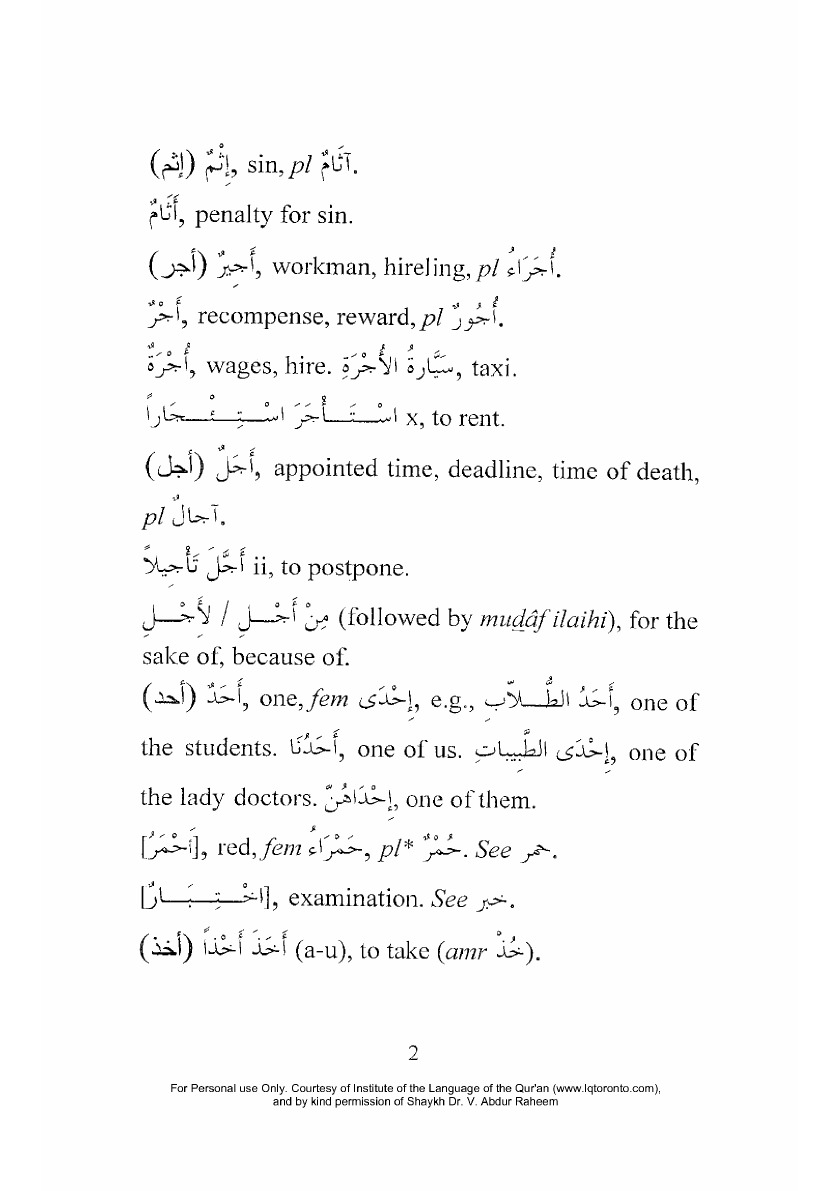 (إثم) إِثْمٌ, sin, pl آثَامٌ.
أَثَامٌ, penalty for sin.
(أجر) أَجِيرٌ, workman, hireling, pl أُجَرَاءُ.
أَجْرٌ, recompense, reward, pl أُجُورٌ.
أُجْرَةٌ, wages, hire. سَيَّارةُ الأُجْرَةِ, taxi.
اسْتَأْجَرَ اسْتِئْجَاراً x, to rent.
(أجل) أَجَلٌ, appointed time, deadline, time of death,
pl آجالٌ.
أَجَّلَ تَأْجِيلاً ii, to postpone.
مِنْ أَجْلِ / لأَجْلِ (followed by muḍâf ilaihi), for the
sake of, because of.
(أحد) أَحَدٌ, one, fem إِحْدَى, e.g., أَحَدُ الطُّلاَّبِ, one of
the students. أَحَدُنَا, one of us. إِحْدَى الطَّبِيباتِ, one of
the lady doctors. إِحْدَاهُنَّ, one of them.
[أَحْمَرُ], red, fem حَمْرَاءُ, pl* حُمْرٌ. See حمر.
[اخْتِبَارٌ], examination. See خبر.
(أخذ) أَخَذَ أَخْذاً (a-u), to take (amr خُذْ).
2
For Personal use Only. Courtesy of Institute of the Language of the Qur'an (www.lqtoronto.com),
and by kind permission of Shaykh Dr. V. Abdur Raheem